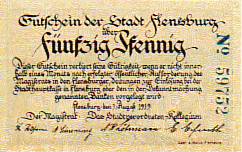 Gutschein der Stadt Flensburg
über
Fünfzig Pfennig
Dieser Gutschein verliert seine Gültigkeit, wenn er nicht inner-
halb eines Monats nach erfolgter öffentlicher Aufforderung des
Magistrats in den Flensburger Zeitungen zur Einlösung bei der
Stadthauptkasse in Flensburg oder den in der Bekanntmachung
genannten Banken vorgelegt wird.
Flensburg, den 1. August 1919.
Der Magistrat. Das Stadtverordneten-Kollegium
No 51752